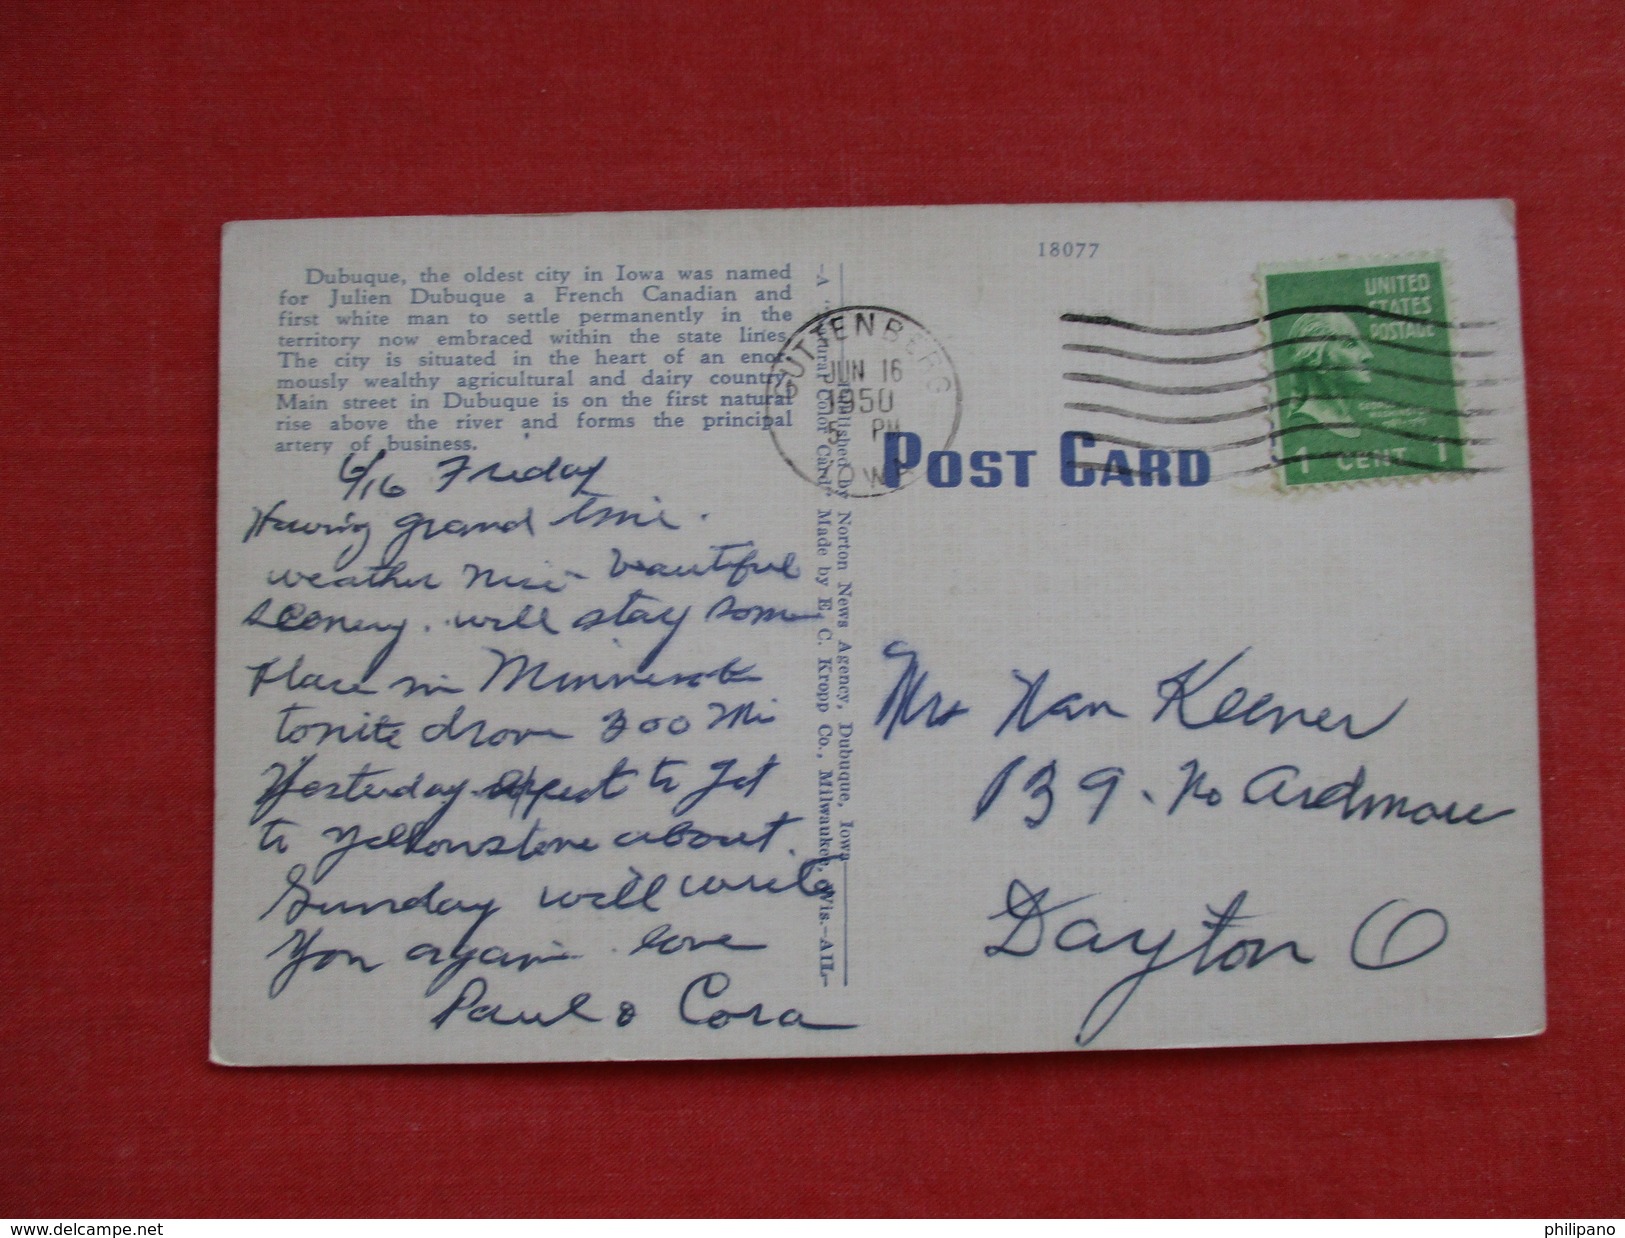 18077
Dubuque, the oldest city in Iowa was named
for Julien Dubuque a French Canadian and
first white man to settle permanently in the
territory now embraced within the state lines.
The city is situated in the heart of an enor-
mously wealthy agricultural and dairy country.
Main street in Dubuque is on the first natural
rise above the river and forms the principal
artery of business.
6/16 Friday
Having grand time.
weather nice - beautiful
scenery. will stay some
place in Minnesota
tonite drove 200 Mi
Yesterday. expect to get
to Yellowstone about
Sunday will write
you again. love
Paul & Cora
—A "Natural Color Card" Made by E. C. Kropp Co., Milwaukee, Wis.—AIL—
Published by Norton News Agency, Dubuque, Iowa
GUTTENBERG
JUN 16
1950
5 PM
IOWA
POST CARD
UNITED
STATES
POSTAGE
GEORGE
WASHINGTON
1 CENT 1
Mrs Nan Keener
139 . No Ardmore
Dayton O
delcampe.net
philipano